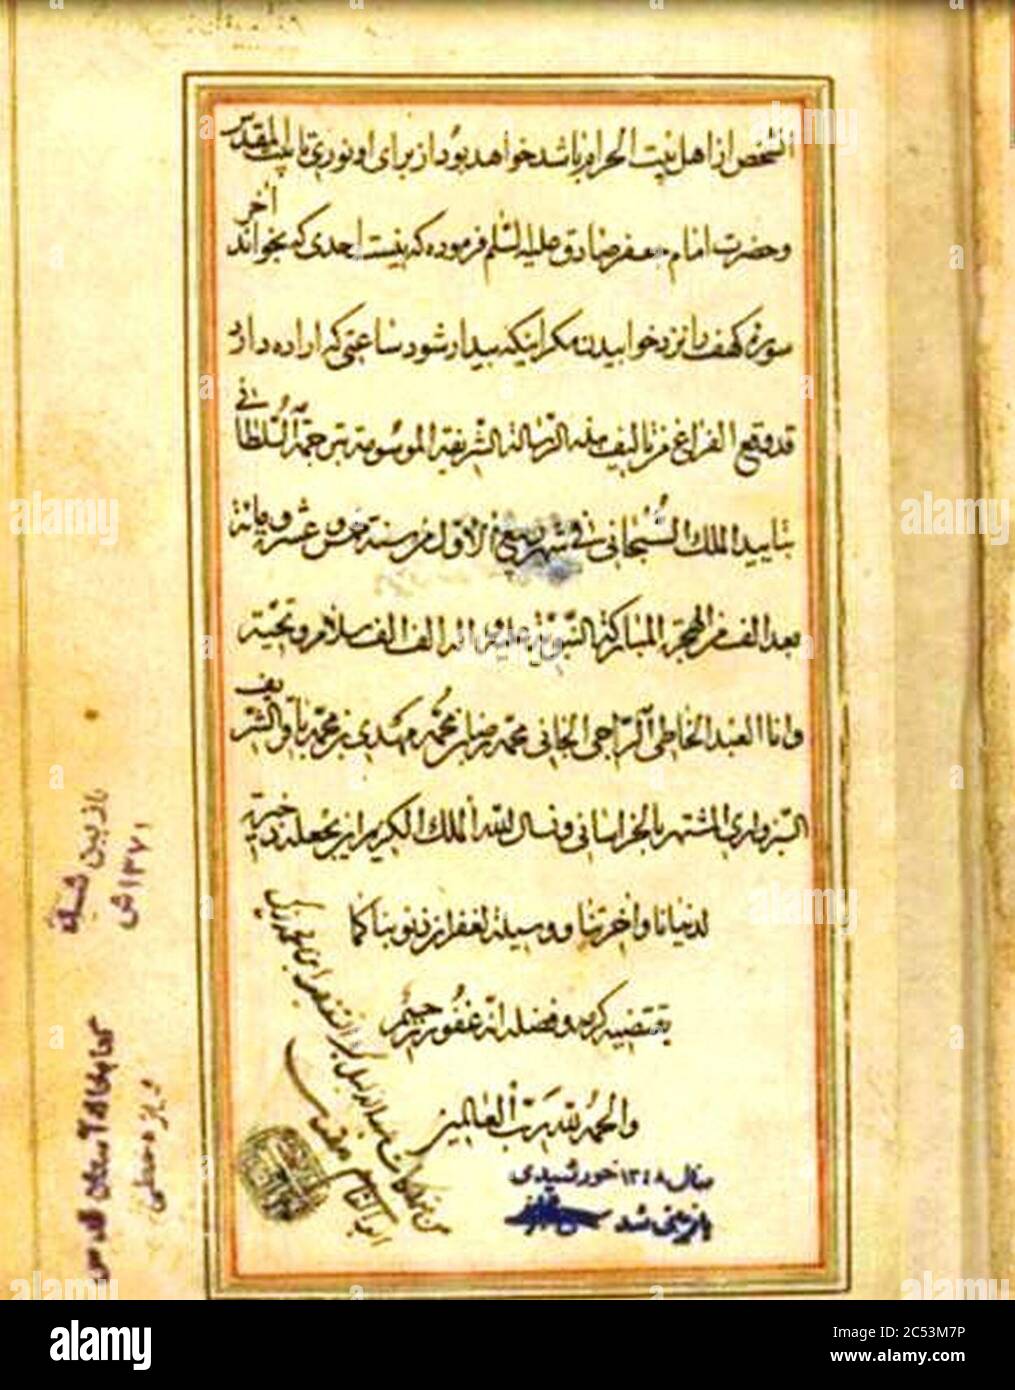 الشخص از اهل بیت الحرام باشد خواهد بود از برای او نوری تا بیت المقدس
و حضرت امام جعفر صادق علیه السلم فرموده که نیست احدی که بخواند آخر
سوره کهف را نزد خوابیدن مگر اینکه بیدار شود ساعتی که اراده دارد
قد وقع الفراغ من تالیف هذه الرسالة الشریفة الموسومة بترجمة السلطانی
بتایید الملك السبحانی فی شهر ربیع الاول من سنة خمس عشر و مائة
بعد الف من الهجرة المبارکة النبویة علیه و آله الف الف سلام و تحیة
و انا العبد الخاطی الراجی الجانی محمد رضا بن محمد مهدی بن محمد باقر الشریف
السبزواری المشتهر بالخراسانی و نسال الله الملك الکریم ان یجعله ذخیرة
لدنیانا و آخرتنا و وسیلة لغفران ذنوبنا کما
یقتضیه کرمه و فضله انه غفور رحیم
و الحمد لله رب العالمین
سال ۱۳۴۸ خورشیدی
بازبینی شد
بازبین شد
۱۳۷۱ ش
کتابخانه آستان قدس
alamy
Image ID: 2C53M7P
www.alamy.com